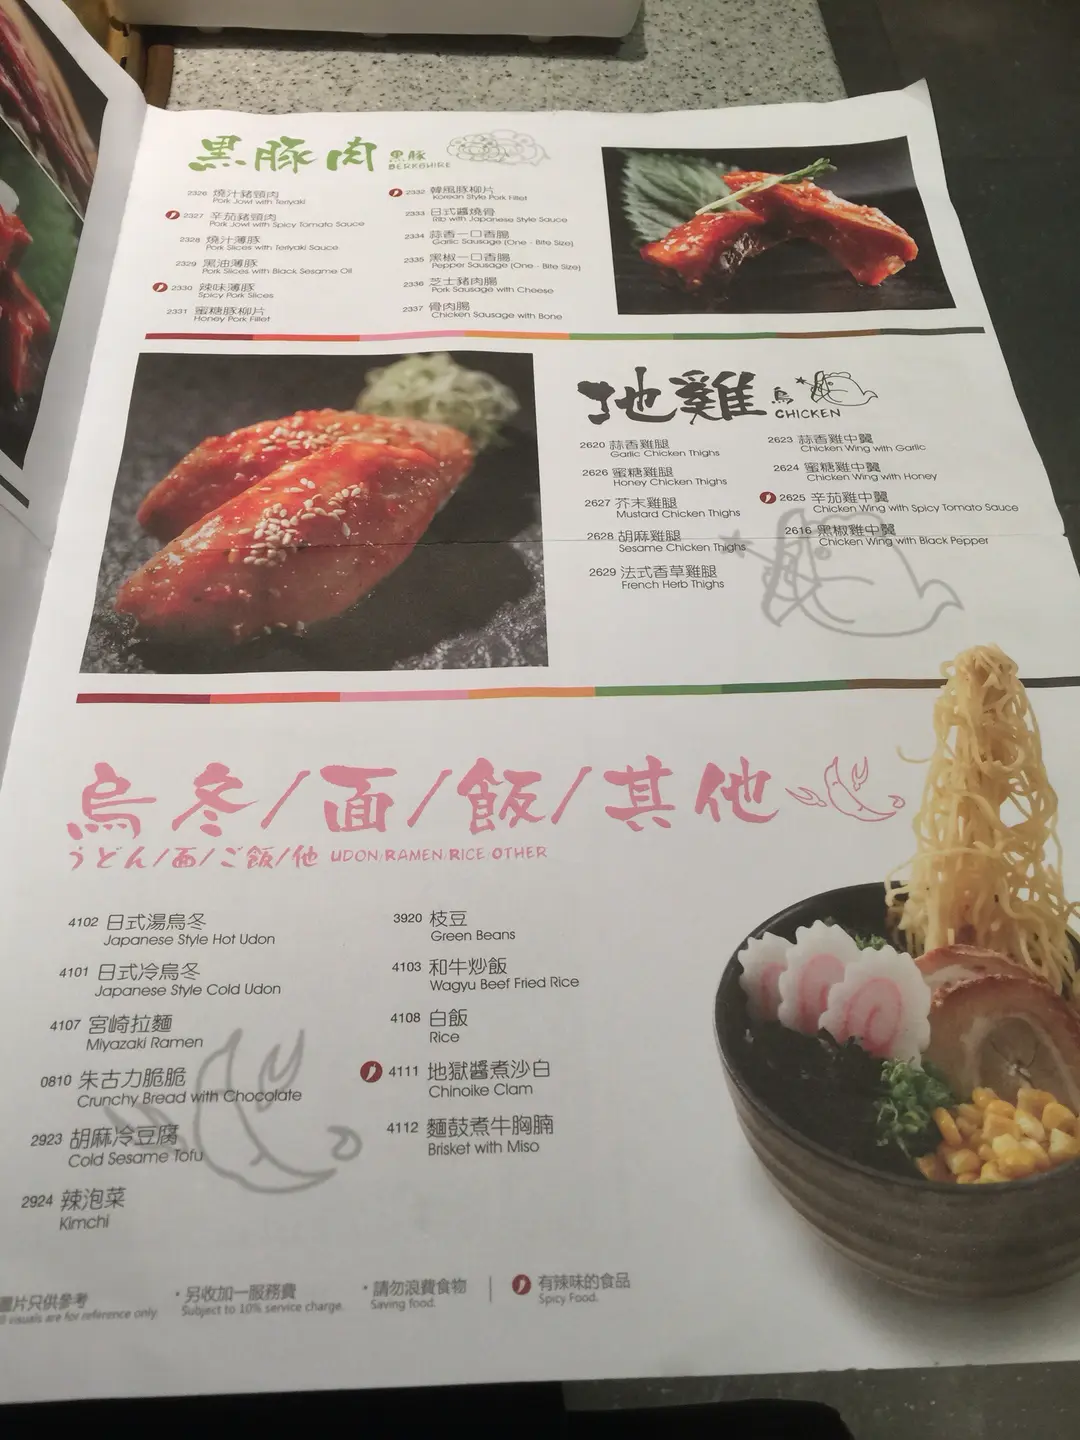 黑豚肉 黑豚 BERKSHIRE
2326 燒汁豬頸肉
Pork Jowl with Teriyaki
2327 辛茄豬頸肉
Pork Jowl with Spicy Tomato Sauce
2328 燒汁薄豚
Pork Slices with Teriyaki Sauce
2329 黑油薄豚
Pork Slices with Black Sesame Oil
2330 辣味薄豚
Spicy Pork Slices
2331 蜜糖豚柳片
Honey Pork Fillet
2332 韓風豚柳片
Korean Style Pork Fillet
2333 日式醬燒骨
Rib with Japanese Style Sauce
2334 蒜香一口香腸
Garlic Sausage (One - Bite Size)
2335 黑椒一口香腸
Pepper Sausage (One - Bite Size)
2336 芝士豬肉腸
Pork Sausage with Cheese
2337 骨肉腸
Chicken Sausage with Bone
地雞 鳥 CHICKEN
2620 蒜香雞腿
Garlic Chicken Thighs
2626 蜜糖雞腿
Honey Chicken Thighs
2627 芥末雞腿
Mustard Chicken Thighs
2628 胡麻雞腿
Sesame Chicken Thighs
2629 法式香草雞腿
French Herb Thighs
2623 蒜香雞中翼
Chicken Wing with Garlic
2624 蜜糖雞中翼
Chicken Wing with Honey
2625 辛茄雞中翼
Chicken Wing with Spicy Tomato Sauce
2616 黑椒雞中翼
Chicken Wing with Black Pepper
烏冬/面/飯/其他
うどん/面/ご飯/他 UDON/RAMEN/RICE/OTHER
4102 日式湯烏冬
Japanese Style Hot Udon
4101 日式冷烏冬
Japanese Style Cold Udon
4107 宮崎拉麵
Miyazaki Ramen
0810 朱古力脆脆
Crunchy Bread with Chocolate
2923 胡麻冷豆腐
Cold Sesame Tofu
2924 辣泡菜
Kimchi
3920 枝豆
Green Beans
4103 和牛炒飯
Wagyu Beef Fried Rice
4108 白飯
Rice
4111 地獄醬煮沙白
Chinoike Clam
4112 麵鼓煮牛胸腩
Brisket with Miso
圖片只供參考
visuals are for reference only.
·另收加一服務費
Subject to 10% service charge.
·請勿浪費食物
Saving food.
有辣味的食品
Spicy Food.